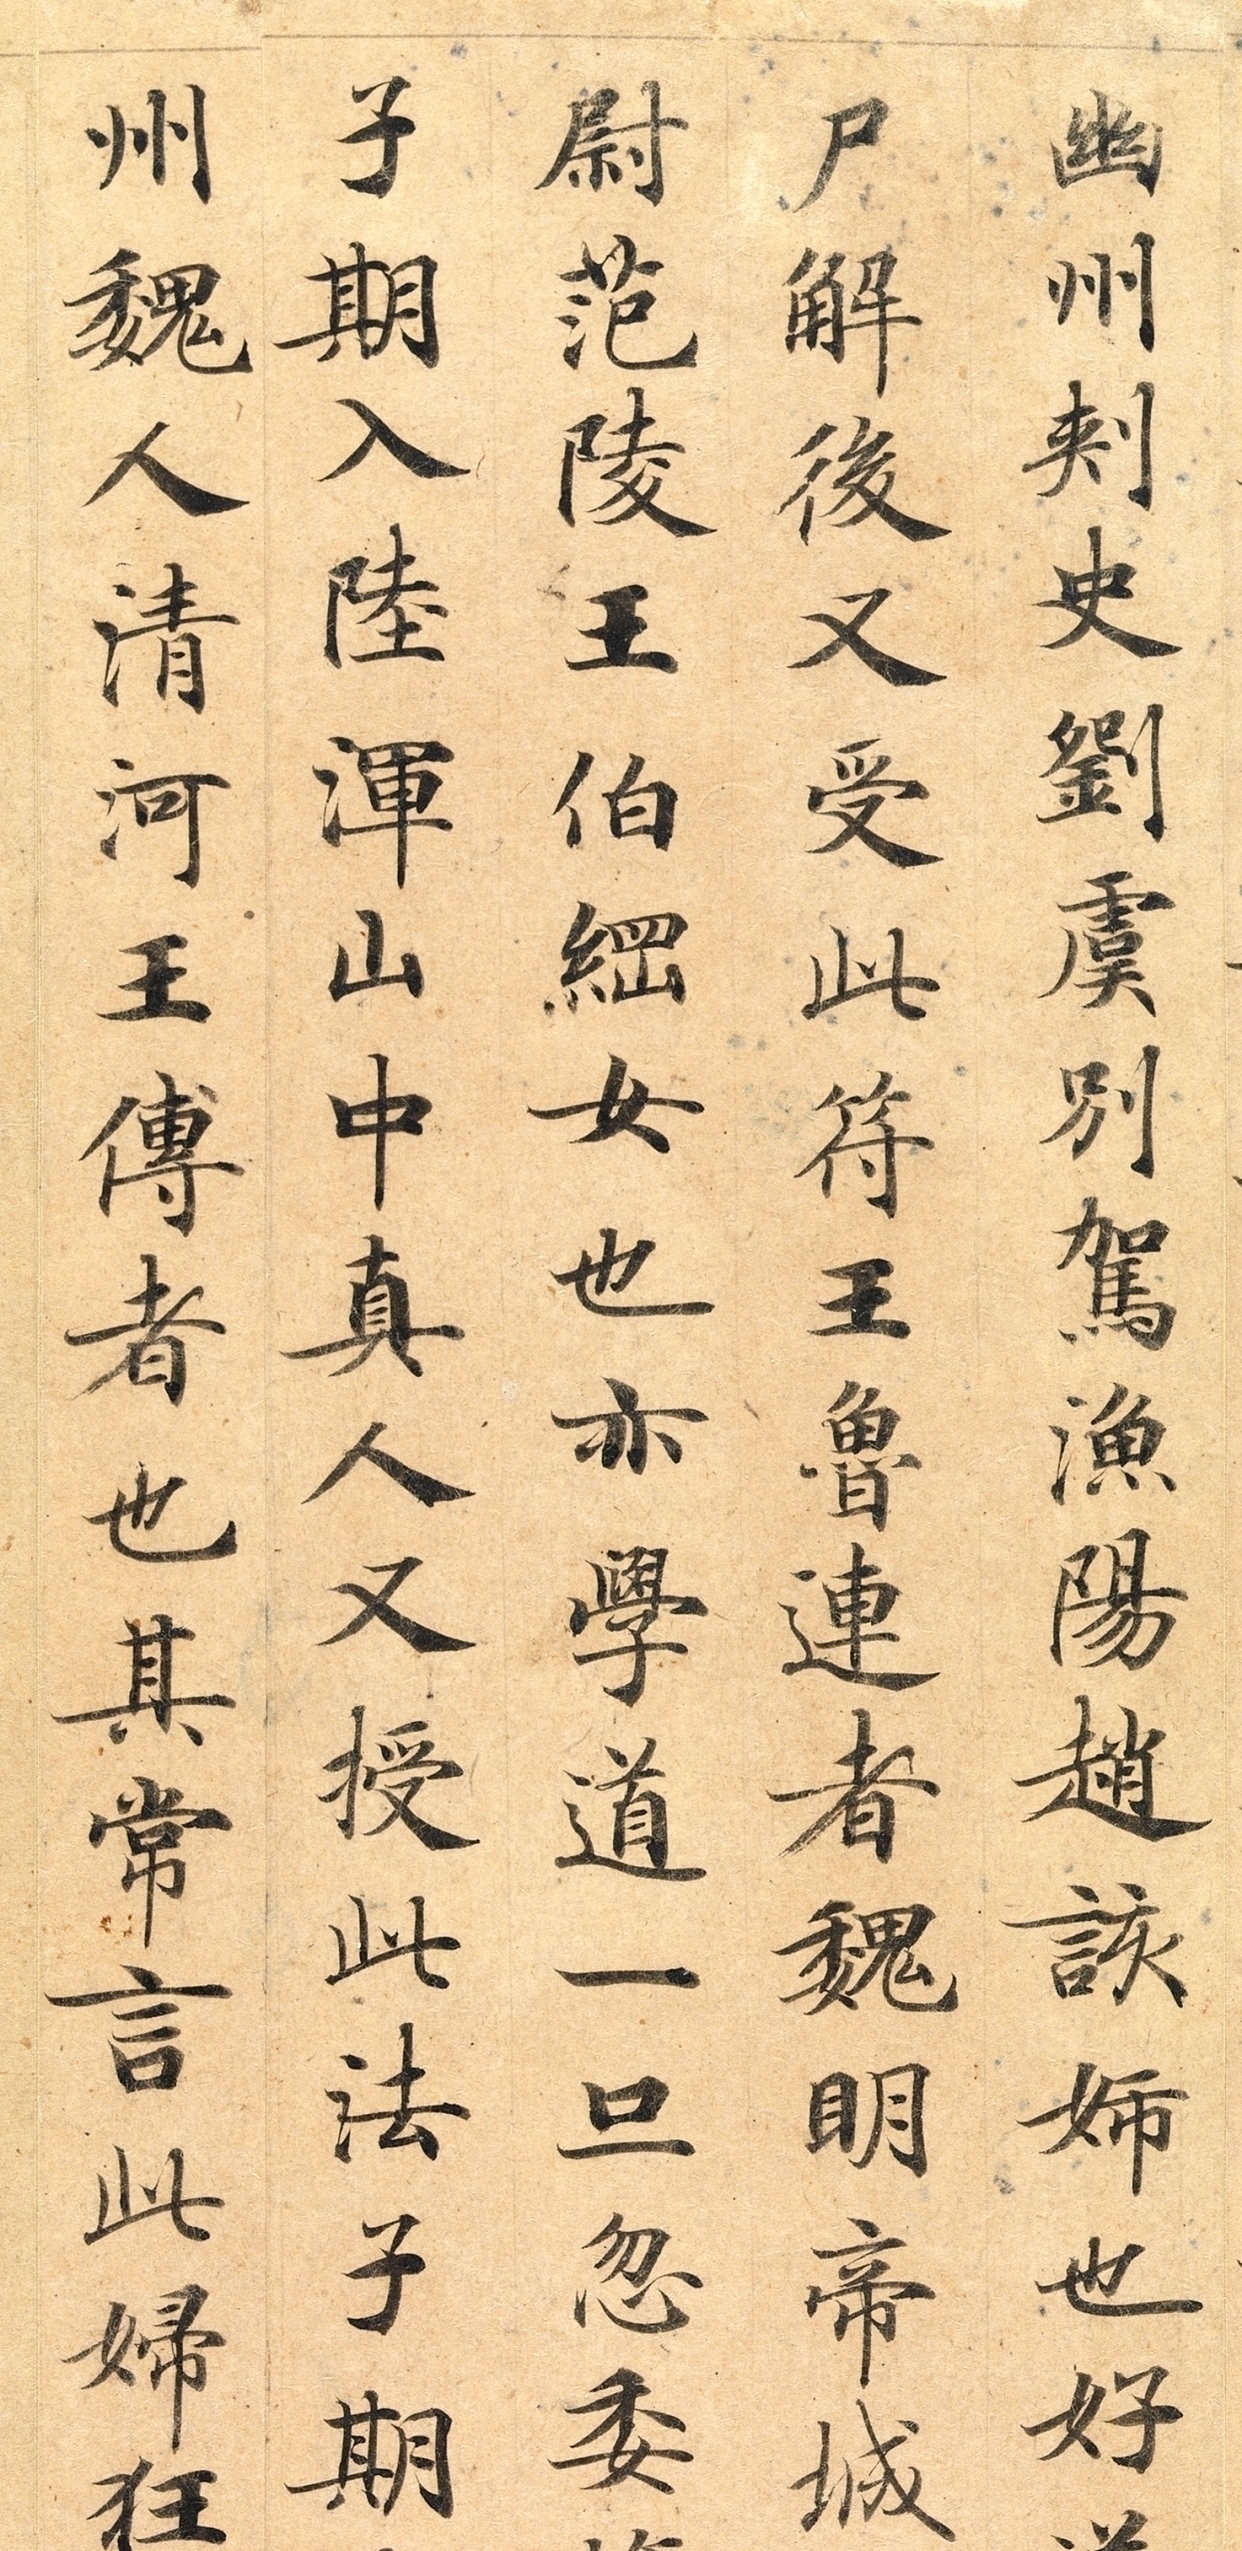 幽州刾史劉虞別駕漁陽趙該姉也好道
尸解後又受此符王魯連者魏明帝城
尉范陵王伯綱女也亦學道一旦忽委
子期入陸渾山中真人又授此法子期
州魏人清河王傳者也其常言此婦狂